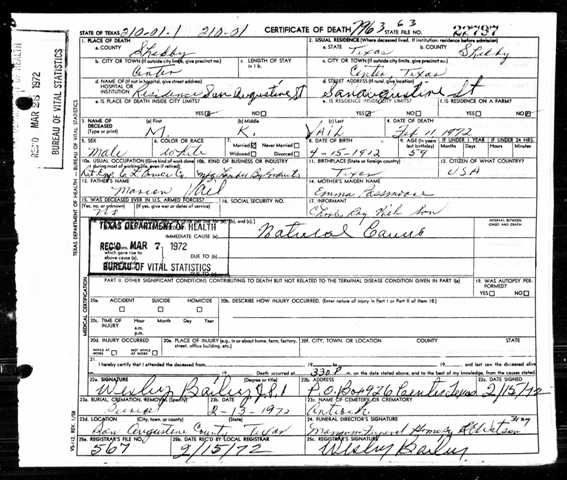 STATE OF TEXAS 210-01-1 210-01 CERTIFICATE OF DEATH 63 STATE FILE NO. 22797
1. PLACE OF DEATH
a. COUNTY Shelby
2. USUAL RESIDENCE (Where deceased lived. If institution: residence before admission)
a. STATE Texas b. COUNTY Shelby
b. CITY OR TOWN (If outside city limits, give precinct no.) Center
c. LENGTH OF STAY in 1 b.
c. CITY OR TOWN (If outside city limits, give precinct no.) Center, Texas
d. NAME OF (If not in hospital, give street address) HOSPITAL OR INSTITUTION Residence San Augustine St
d. STREET ADDRESS (If rural, give location) San Augustine St
e. IS PLACE OF DEATH INSIDE CITY LIMITS? YES NO
e. IS RESIDENCE INSIDE CITY LIMITS? YES NO
f. IS RESIDENCE ON A FARM? YES NO
3. NAME OF DECEASED (Type or print)
(a) First M. (b) Middle K. (c) Last Vail
4. DATE OF DEATH Feb 11 1972
5. SEX Male
6. COLOR OR RACE White
7. Married Never Married Widowed Divorced
8. DATE OF BIRTH 4-15-1912
9. AGE 59
IF UNDER 1 YEAR Months Days
IF UNDER 24 HRS. Hours Minutes
10a. USUAL OCCUPATION (Give kind of work done during most of working life, even if retired)
10b. KIND OF BUSINESS OR INDUSTRY
11. BIRTHPLACE (State or foreign country) Texas
12. CITIZEN OF WHAT COUNTRY? USA
13. FATHER'S NAME Marion Vail
14. MOTHER'S MAIDEN NAME Emma Passmore
15. WAS DECEASED EVER IN U.S. ARMED FORCES? (Yes, no, or unknown) (If yes, give war or dates of service) No
16. SOCIAL SECURITY NO.
17. INFORMANT Son
(b), and (c).
INTERVAL BETWEEN ONSET AND DEATH
TEXAS DEPARTMENT OF HEALTH
REC'D MAR 7 1972
BUREAU OF VITAL STATISTICS
IMMEDIATE CAUSE (a) Natural Causes
which gave rise to above cause (a) DUE TO (b)
DUE TO (c)
PART II. OTHER SIGNIFICANT CONDITIONS CONTRIBUTING TO DEATH BUT NOT RELATED TO THE TERMINAL DISEASE CONDITION GIVEN IN PART I(a)
19. WAS AUTOPSY PERFORMED? YES NO
20a. ACCIDENT SUICIDE HOMICIDE
20b. DESCRIBE HOW INJURY OCCURRED. (Enter nature of injury in Part I or Part II of item 18.)
20c. TIME OF INJURY Hour Month Day Year a.m. p.m.
20d. INJURY OCCURRED WHILE AT WORK NOT WHILE AT WORK
20e. PLACE OF INJURY (e.g., in or about home, farm, factory, street, office building, etc.)
20f. CITY, TOWN, OR LOCATION COUNTY STATE
21. I hereby certify that I attended the deceased from 19 to 19 and last saw the deceased alive
on 19 Death occurred at 330 P m. on the date stated above, and to the best of my knowledge, from the causes stated
22a. SIGNATURE (Degree or title) Wesley Bailey J.P.1
22b. ADDRESS P.O. Box 926 Center Texas
22c. DATE SIGNED 2/15/72
23a. BURIAL, CREMATION, REMOVAL (Specify)
23b. DATE 2-13-1972
23c. NAME OF CEMETERY OR CREMATORY Antioch
23d. LOCATION (City, town, or county) (State) San Augustine County Texas
24. FUNERAL DIRECTOR'S SIGNATURE
25a. REGISTRAR'S FILE NO. 567
25b. DATE REC'D BY LOCAL REGISTRAR 2/15/72
25c. REGISTRAR'S SIGNATURE Wesley Bailey
REC'D MAR 28 1972
BUREAU OF VITAL STATISTICS
TEXAS DEPARTMENT OF HEALTH
MEDICAL CERTIFICATION